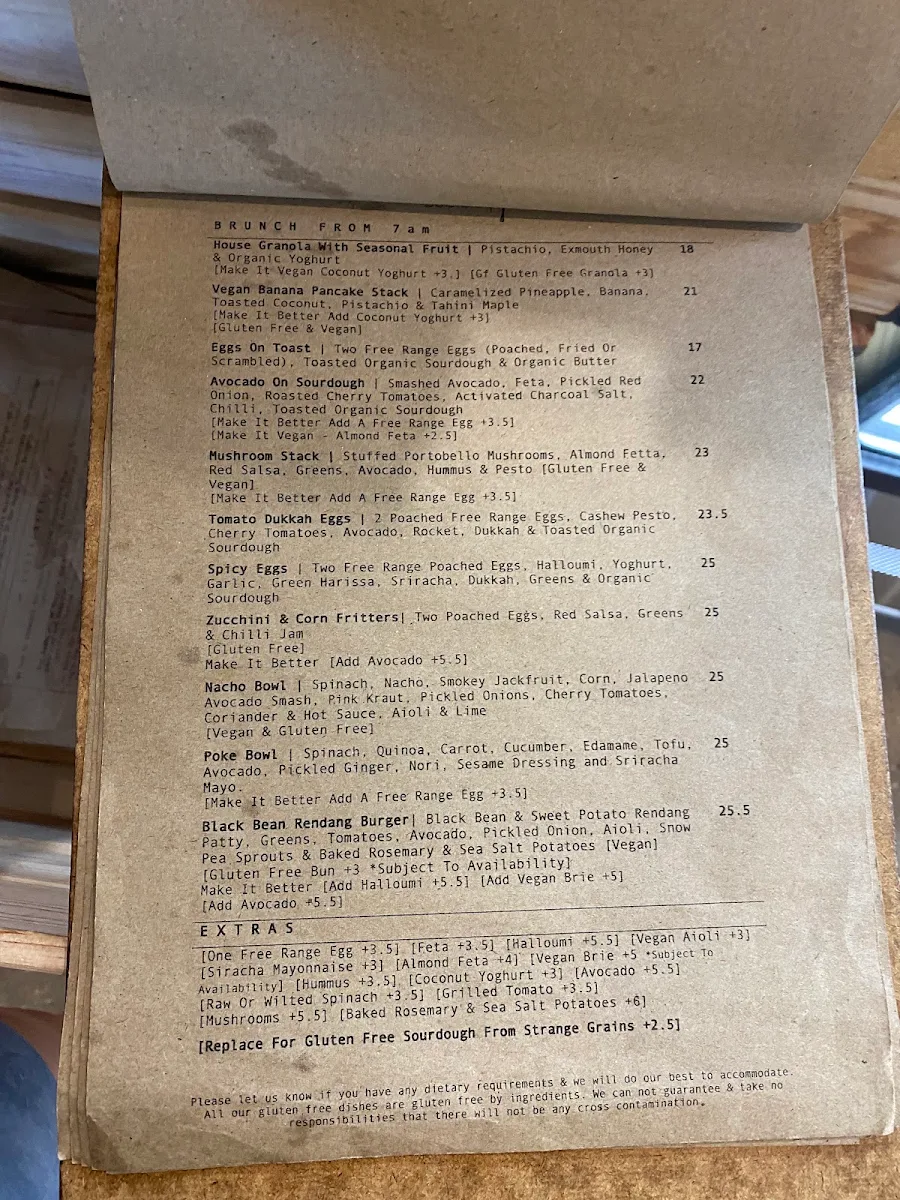 BRUNCH FROM 7am
House Granola With Seasonal Fruit | Pistachio, Exmouth Honey 18
& Organic Yoghurt
[Make It Vegan Coconut Yoghurt +3.] [Gf Gluten Free Granola +3]
Vegan Banana Pancake Stack | Caramelized Pineapple, Banana, 21
Toasted Coconut, Pistachio & Tahini Maple
[Make It Better Add Coconut Yoghurt +3]
[Gluten Free & Vegan]
Eggs On Toast | Two Free Range Eggs (Poached, Fried Or 17
Scrambled), Toasted Organic Sourdough & Organic Butter
Avocado On Sourdough | Smashed Avocado, Feta, Pickled Red 22
Onion, Roasted Cherry Tomatoes, Activated Charcoal Salt,
Chilli, Toasted Organic Sourdough
[Make It Better Add A Free Range Egg +3.5]
[Make It Vegan - Almond Feta +2.5]
Mushroom Stack | Stuffed Portobello Mushrooms, Almond Fetta, 23
Red Salsa, Greens, Avocado, Hummus & Pesto [Gluten Free &
Vegan]
[Make It Better Add A Free Range Egg +3.5]
Tomato Dukkah Eggs | 2 Poached Free Range Eggs, Cashew Pesto, 23.5
Cherry Tomatoes, Avocado, Rocket, Dukkah & Toasted Organic
Sourdough
Spicy Eggs | Two Free Range Poached Eggs, Halloumi, Yoghurt, 25
Garlic, Green Harissa, Sriracha, Dukkah, Greens & Organic
Sourdough
Zucchini & Corn Fritters| Two Poached Eggs, Red Salsa, Greens 25
& Chilli Jam
[Gluten Free]
Make It Better [Add Avocado +5.5]
Nacho Bowl | Spinach, Nacho, Smokey Jackfruit, Corn, Jalapeno 25
Avocado Smash, Pink Kraut, Pickled Onions, Cherry Tomatoes,
Coriander & Hot Sauce, Aioli & Lime
[Vegan & Gluten Free]
Poke Bowl | Spinach, Quinoa, Carrot, Cucumber, Edamame, Tofu, 25
Avocado, Pickled Ginger, Nori, Sesame Dressing and Sriracha
Mayo.
[Make It Better Add A Free Range Egg +3.5]
Black Bean Rendang Burger| Black Bean & Sweet Potato Rendang 25.5
Patty, Greens, Tomatoes, Avocado, Pickled Onion, Aioli, Snow
Pea Sprouts & Baked Rosemary & Sea Salt Potatoes [Vegan]
[Gluten Free Bun +3 *Subject To Availability]
Make It Better [Add Halloumi +5.5] [Add Vegan Brie +5]
[Add Avocado +5.5]
EXTRAS
[One Free Range Egg +3.5] [Feta +3.5] [Halloumi +5.5] [Vegan Aioli +3]
[Siracha Mayonnaise +3] [Almond Feta +4] [Vegan Brie +5 *Subject To
Availability] [Hummus +3.5] [Coconut Yoghurt +3] [Avocado +5.5]
[Raw Or Wilted Spinach +3.5] [Grilled Tomato +3.5]
[Mushrooms +5.5] [Baked Rosemary & Sea Salt Potatoes +6]
[Replace For Gluten Free Sourdough From Strange Grains +2.5]
Please let us know if you have any dietary requirements & we will do our best to accommodate.
All our gluten free dishes are gluten free by ingredients. We can not guarantee & take no
responsibilities that there will not be any cross contamination.